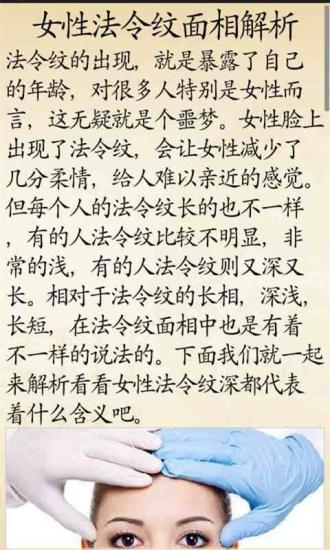 女性法令纹面相解析
法令纹的出现，就是暴露了自己
的年龄，对很多人特别是女性而
言，这无疑就是个噩梦。女性脸上
出现了法令纹，会让女性减少了
几分柔情，给人难以亲近的感觉。
但每个人的法令纹长的也不一样
，有的人法令纹比较不明显，非
常的浅，有的人法令纹则又深又
长。相对于法令纹的长相，深浅，
长短，在法令纹面相中也是有着
不一样的说法的。下面我们就一起
来解析看看女性法令纹深都代表
着什么含义吧。